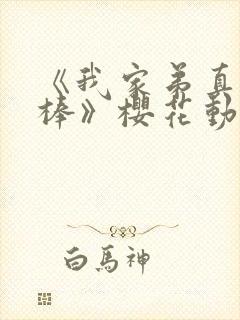 《我家弟真
棒》樱花動
白馬神